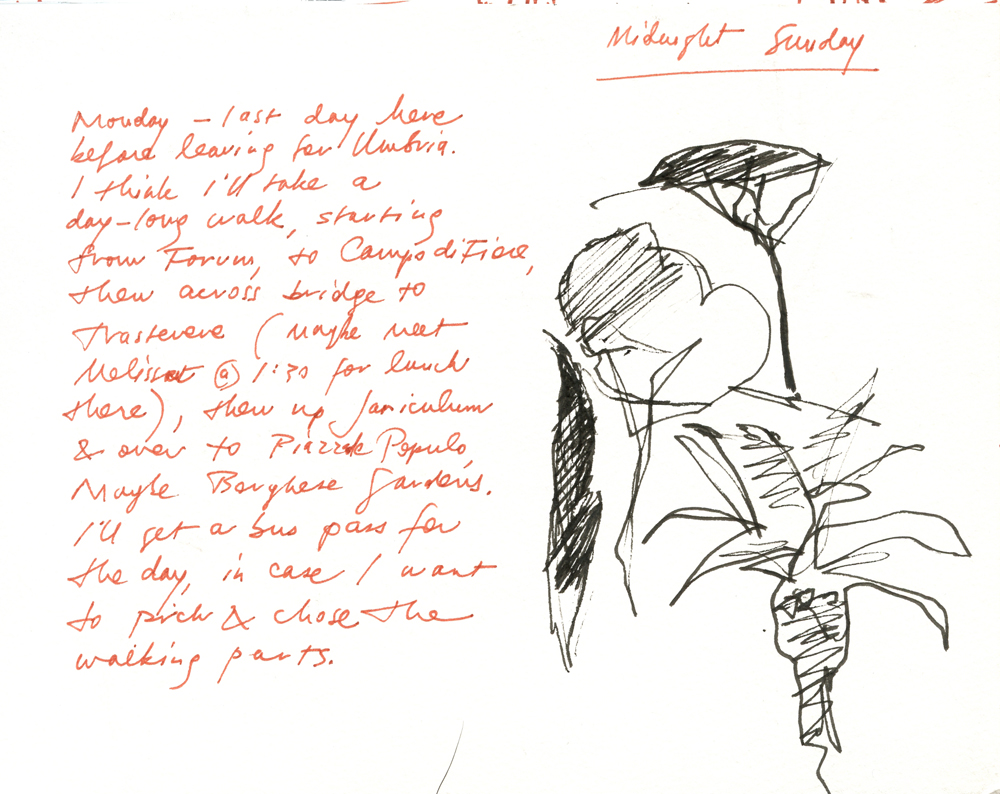 Midnight Sunday
Monday – last day here
before leaving for Umbria.
I think I'll take a
day-long walk, starting
from Forum, to Campo di Fiore,
then across bridge to
Trastevere (maybe meet
Melissa @ 1:30 for lunch
there), then up Janiculum
& over to Piazza Populo,
Maybe Borghese Gardens.
I'll get a bus pass for
the day, in case I want
to pick & chose the
walking parts.